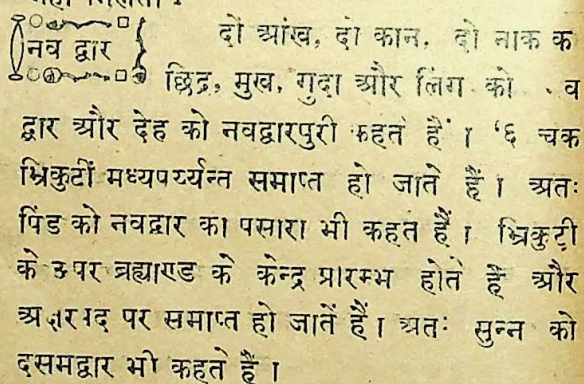 नव द्वार
दो आंख, दो कान, दो नाक क
छिद्र, मुख, गुदा और लिंग को व
द्वार और देह को नवद्वारपुरी कहत हैं । ‘६ चक
भ्रिकुटीं मध्यपर्य्यन्त समाप्त हो जाते हैं । अतः
पिंड को नवद्वार का पसारा भी कहत हैं । भ्रिकुटी
के ऊपर ब्रह्माण्ड के केन्द्र प्रारम्भ होते हैं और
पर समाप्त हो जातें हैं । अतः सुन्न को
दसमद्वार भी कहते हैं ।